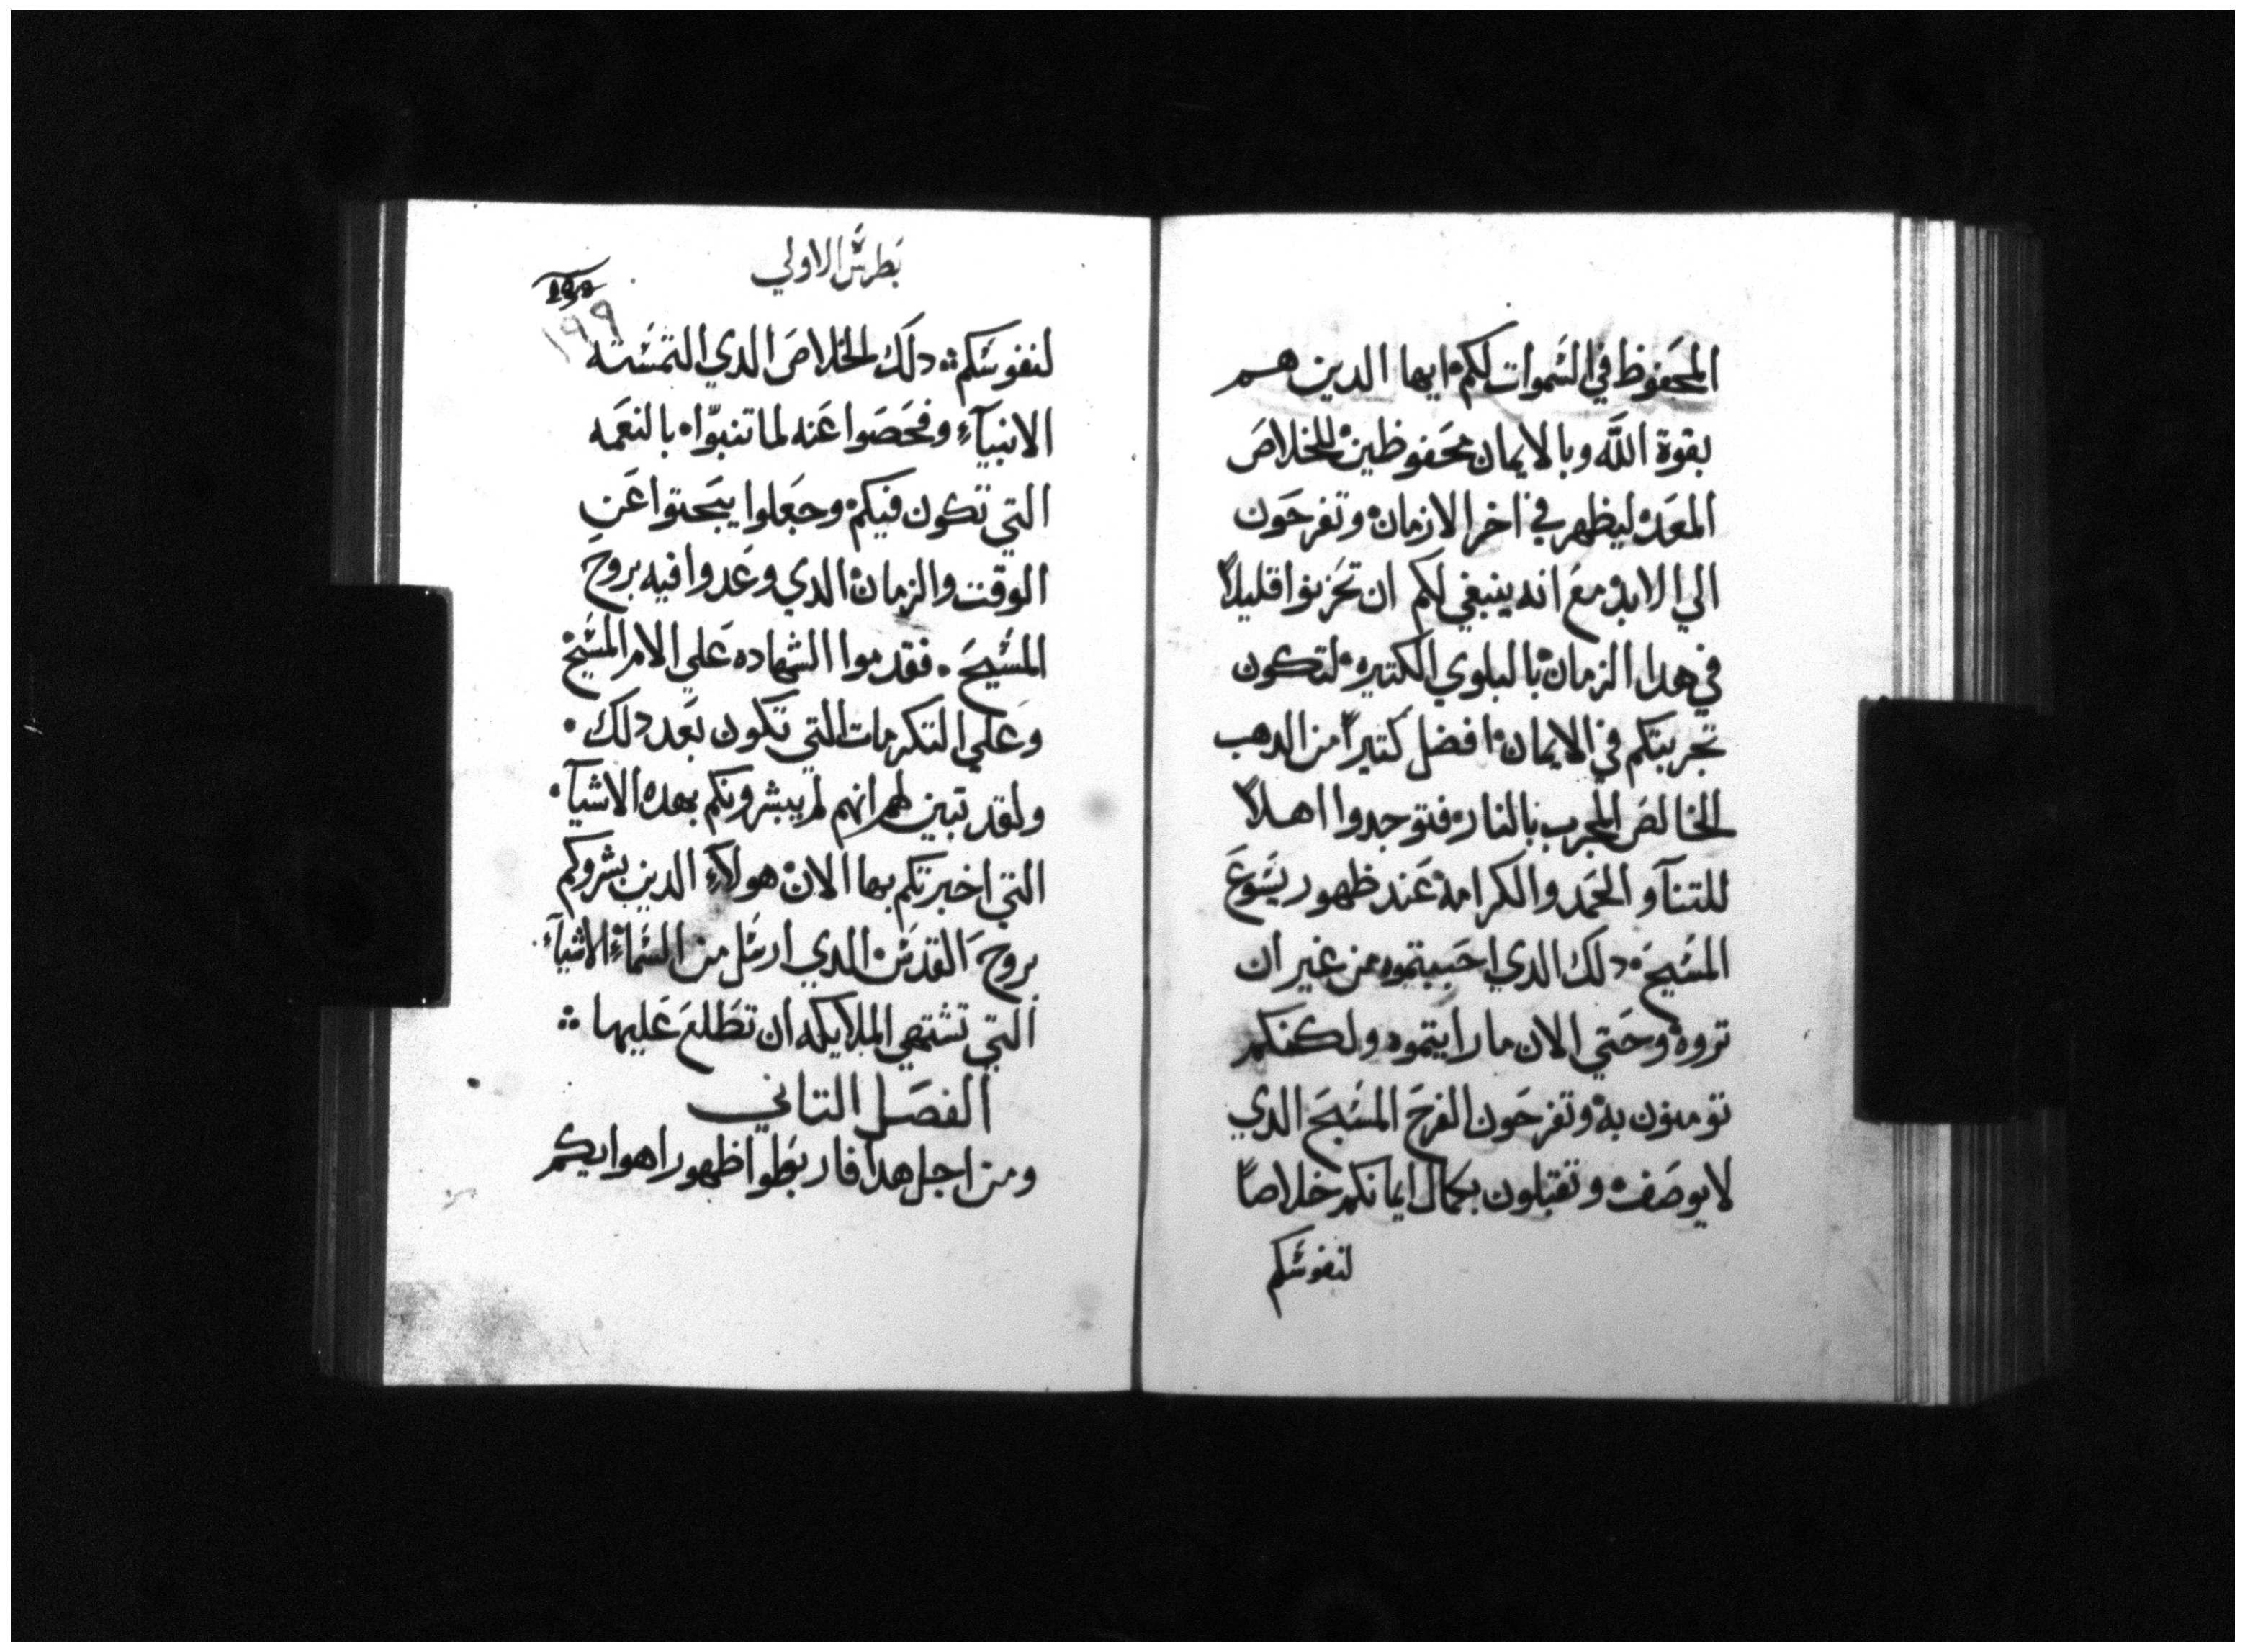 المحفوظ في السموات لكم ايها الدين هم
بقوة الله وبالايمان محفوظين للخلاص
المعد ليظهر في اخر الازمان وتفرحون
الي الابد مع انه ينبغي لكم ان تحزنوا قليلاً
في هدا الزمان بالبلوي الكتيره لتكون
تجربتكم في الايمان افضل كتيراً من الدهب
الخالص المجرب بالنار فتوجدوا اهلاً
للتنآ والحمد والكرامه عند ظهور يسوع
المسيح دلك الدي احببتموه من غير ان
تروه وحتي الان ما رايتموه ولكنكم
تومنون به وتفرحون الفرح المسبح الدي
لا يوصف وتقبلون بكمال ايمانكم خلاصاً
لنفوسكم
بطرس الاولي
١٩٩
لنفوسكم ؞ دلك الخلاص الدي التمسته
الانبيآء وفحصوا عنه لما تنبوّا بالنعمه
التي تكون فيكم وجعلوا يبحتوا عن
الوقت والزمان الدي وعدوا فيه بروح
المسيح . فقدموا الشهاده علي الام المسيح
وعلي التكرمات التي تكون بعد دلك .
ولقد تبين لهم انهم لم يبشرونكم بهده الاشيآ .
التي اخبرتكم بها الان هولآء الدين بشروكم
بروح القدس الدي ارسل من السمآء الاشيآء
التي تشتهي الملايكه ان تطلع عليها ؞
الفصل التاني
ومن اجل هدا فاربطوا ظهور اهوايكم